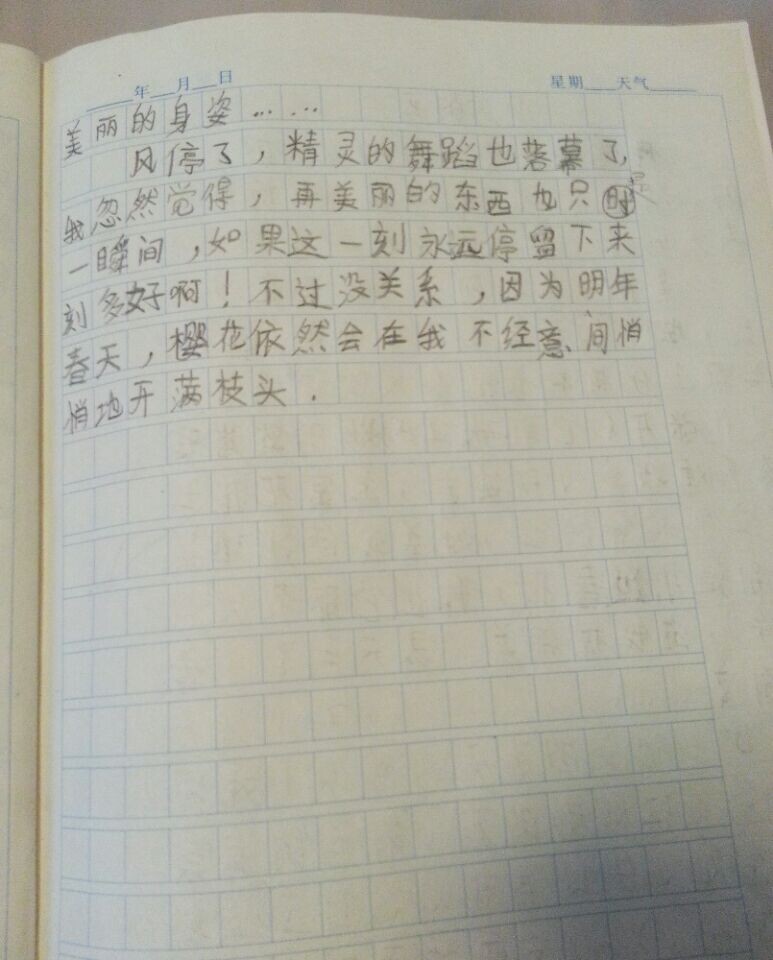 年 月 日 星期 天气
美丽的身姿……
风停了，精灵的舞蹈也落幕了，
我忽然觉得，再美丽的东西也只时是
一瞬间，如果这一刻永远停留下来
刻多好啊！不过没关系，因为明年
春天，樱花依然会在我不经意间悄
悄地开满枝头．